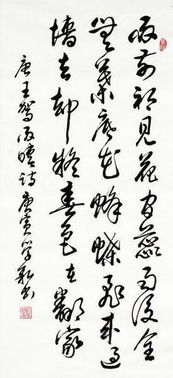 雨前初見花间蕊雨後全
無葉底花蜂蝶飛来過
墻去却疑春色在鄰家
唐王駕雨晴詩庚寅